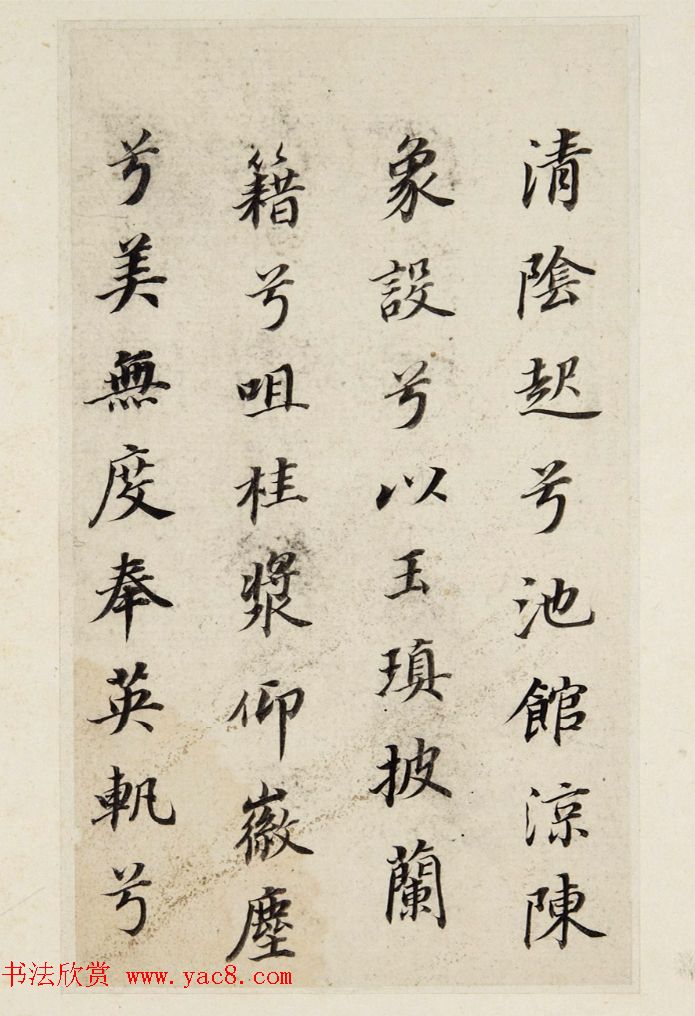 清陰起兮池館涼陳
象設兮以玉瑱披蘭
籍兮咀桂漿仰徽塵
兮美無度奉英軓兮
书法欣赏 www.yac8.com